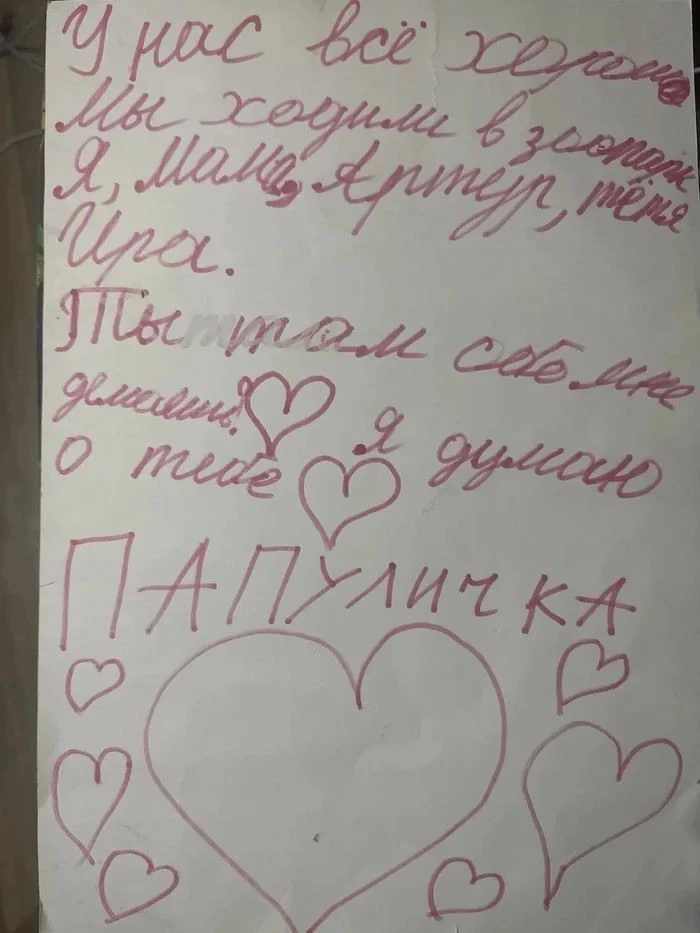 У нас всё хорошо
Мы ходили в зоопарк
Я, мама, Артур, тётя
Ира.
Ты там обо мне
думаешь?
Я думаю
о тебе
ПАПУЛИЧКА